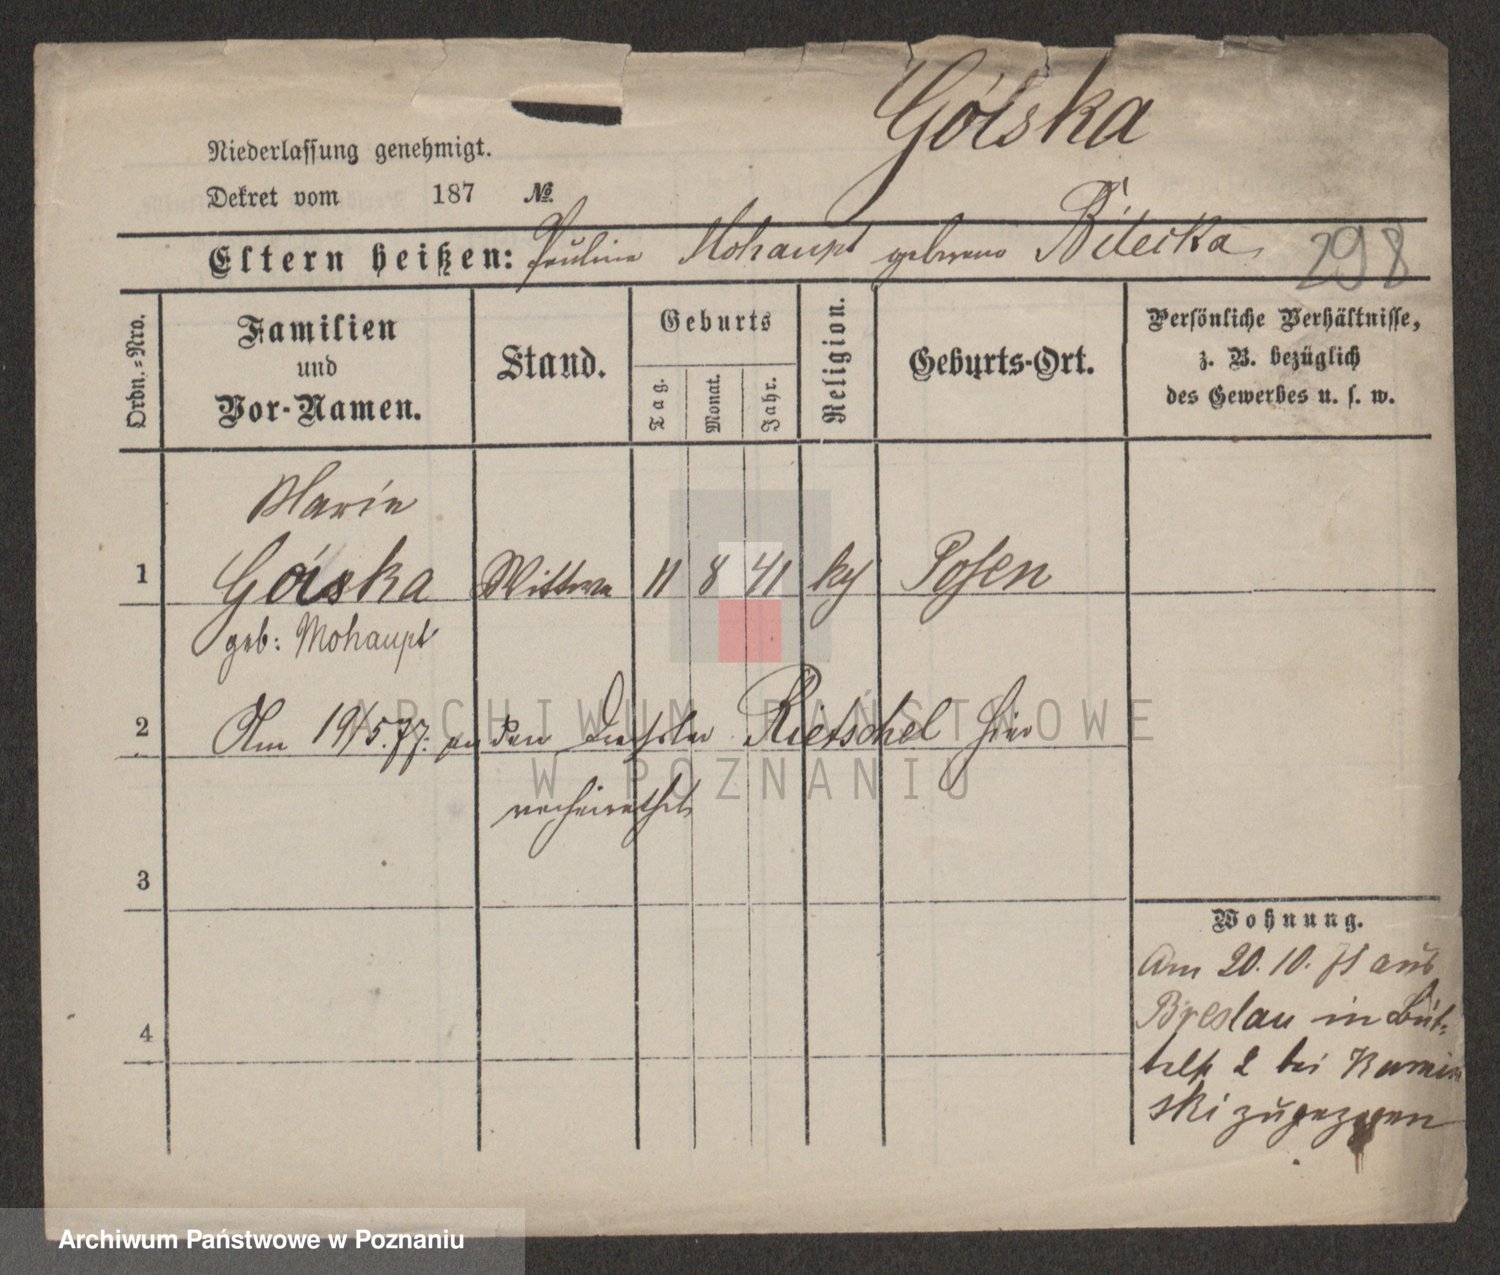 Górska
Niederlassung genehmigt.
Dekret vom 187 №.
Eltern heißen: Pauline Mohaupt geborene Bilecka
298
Ordn.-Nro.
Familien
und
Vor-Namen.
Stand.
Geburts
Tag.
Monat.
Jahr.
Religion.
Geburts-Ort.
Persönliche Verhältnisse,
z. B. bezüglich
des Gewerbes u. s. w.
Marie
1 Górska Wittwe 11 8 41 Posen
geb: Mohaupt
2 Am 19/5.77. an den Drechsler Rietschel hier
verheirathet
3
4
Wohnung.
Am 20.10. 71 aus
Breslau in Büt-
telst 2 bei Kamin
ski zugezogen
ARCHIWUM PAŃSTWOWE
W POZNANIU
Archiwum Państwowe w Poznaniu